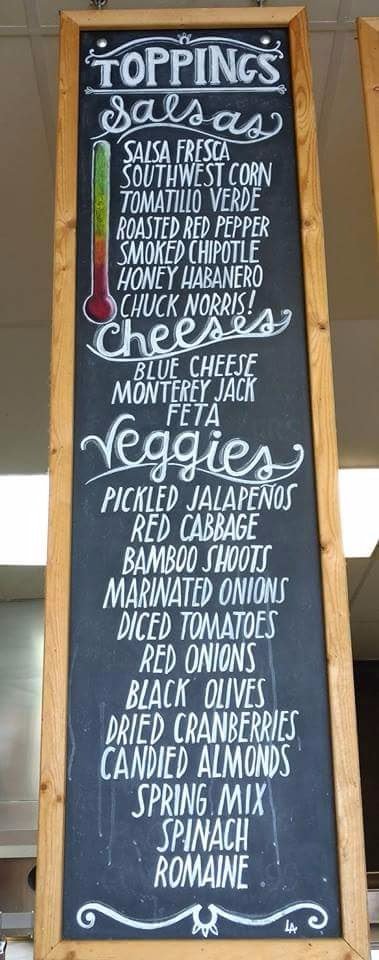 TOPPINGS
Salsas
SALSA FRESCA
SOUTHWEST CORN
TOMATILLO VERDE
ROASTED RED PEPPER
SMOKED CHIPOTLE
HONEY HABANERO
CHUCK NORRIS!
Cheeses
BLUE CHEESE
MONTEREY JACK
FETA
Veggies
PICKLED JALAPEÑOS
RED CABBAGE
BAMBOO SHOOTS
MARINATED ONIONS
DICED TOMATOES
RED ONIONS
BLACK OLIVES
DRIED CRANBERRIES
CANDIED ALMONDS
SPRING MIX
SPINACH
ROMAINE
LA